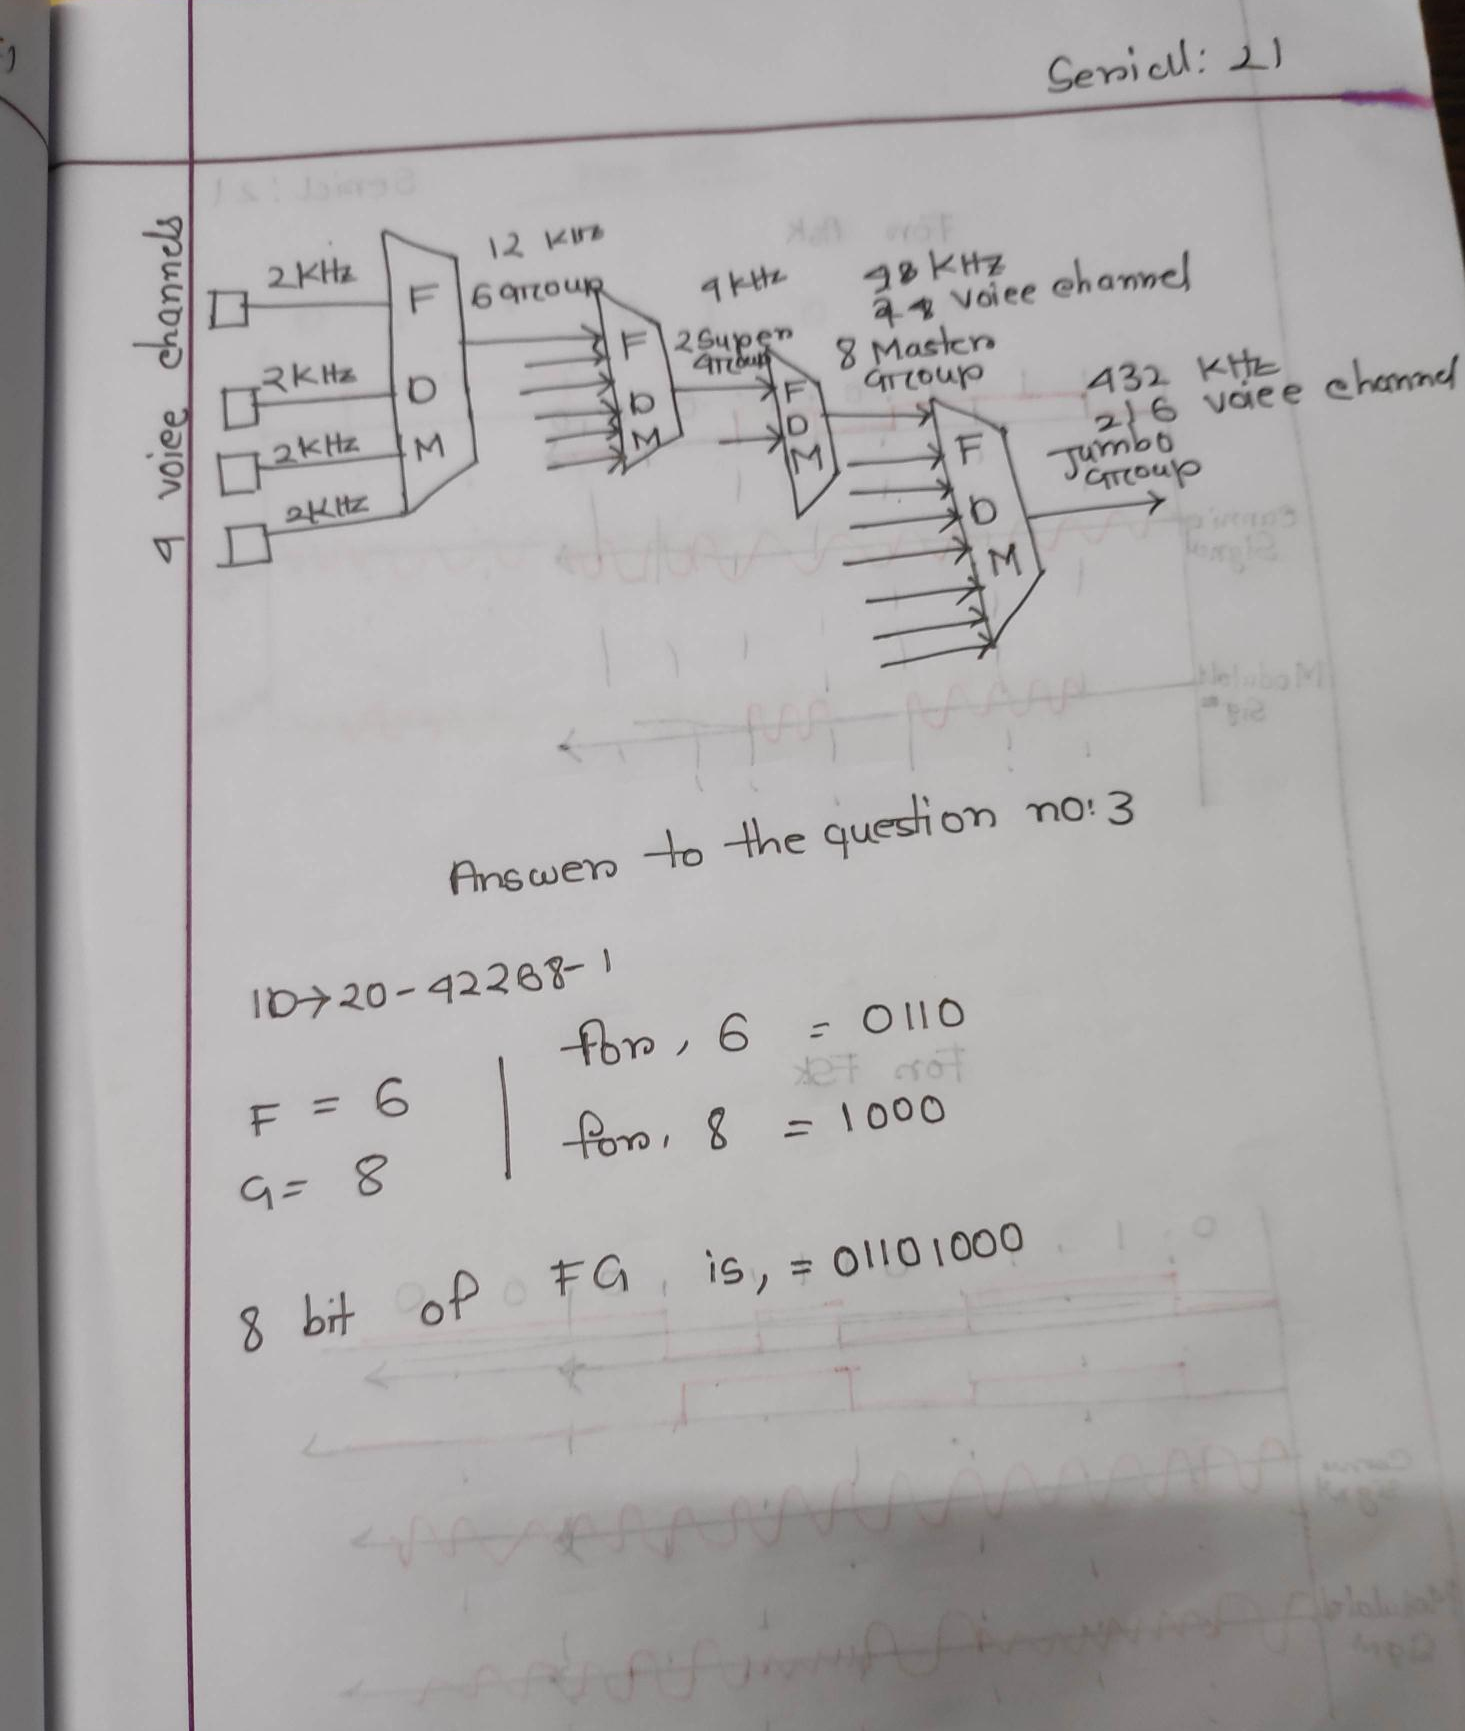 Serial: 21
4 voice channels
2 KHz
2 KHz
2 KHz
2 KHz
F
D
M
12 KHz
6 Group
F
D
M
4 KHz
2 Super
Group
F
D
M
48 KHz
voice channel
8 Master
Group
F
D
M
432 KHz
216 voice channel
Jumbo
Group
Answer to the question no: 3
ID→20-42268-1
F = 6
G = 8
for, 6 = 0110
for, 8 = 1000
8 bit of FG is, = 01101000